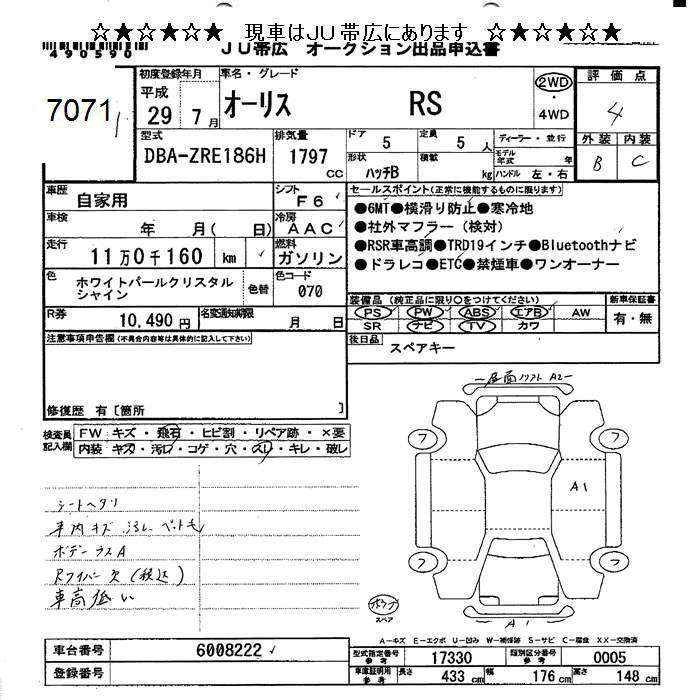 ☆★☆★☆★ 現車はJU帯広にあります ☆★☆★☆★
490590
JU帯広 オークション出品申込書
7071
初度登録年月
平成
29 7月
車名・グレード
オーリス RS
2WD
・
4WD
評価点
4
外装 内装
B C
型式
DBA-ZRE186H
排気量
1797
CC
ドア 5
定員 5 人
形状 ハッチB
積載 kg
ディーラー・並行
モデル年式 年
ハンドル 左・右
車歴 自家用
シフト F6
車検 年 月( 日)
冷房 AAC
走行 11万0千160 km
燃料 ガソリン
色 ホワイトパールクリスタルシャイン
色替
色コード 070
R券 10,490円
名変通知期限 月 日
セールスポイント(正常に機能するものに限ります)
●6MT●横滑り防止●寒冷地
●社外マフラー(検対)
●RSR車高調●TRD19インチ●Bluetoothナビ
●ドラレコ●ETC●禁煙車●ワンオーナー
装備品(純正品に限り○をつけてください)
新車保証書
PS PW ABS エアB AW
SR ナビ TV カワ
有・無
後日品 スペアキー
注意事項申告欄(不具合内容等は具体的に記入して下さい)
修復歴 有〔箇所 〕
検査員記入欄
FW キズ・飛石・ヒビ割・リペア跡・×要
内装 キズ・汚れ・コゲ・穴・スレ・キレ・破レ
シートヘタリ
車内キズ 汚レ ペット毛
ボデーウスA
Rワイパー欠(税込)
車高低い
A2
フ フ
A1
フ フ
スペア
A1
A-キズ E-エクボ U-凹み W-補修跡 S-サビ C-腐食 XX-交換済
車台番号 6008222
登録番号
型式指定番号 参考 17330
類別区分番号 参考 0005
車庫証明用 参考
長さ 433 cm
幅 176 cm
高さ 148 cm